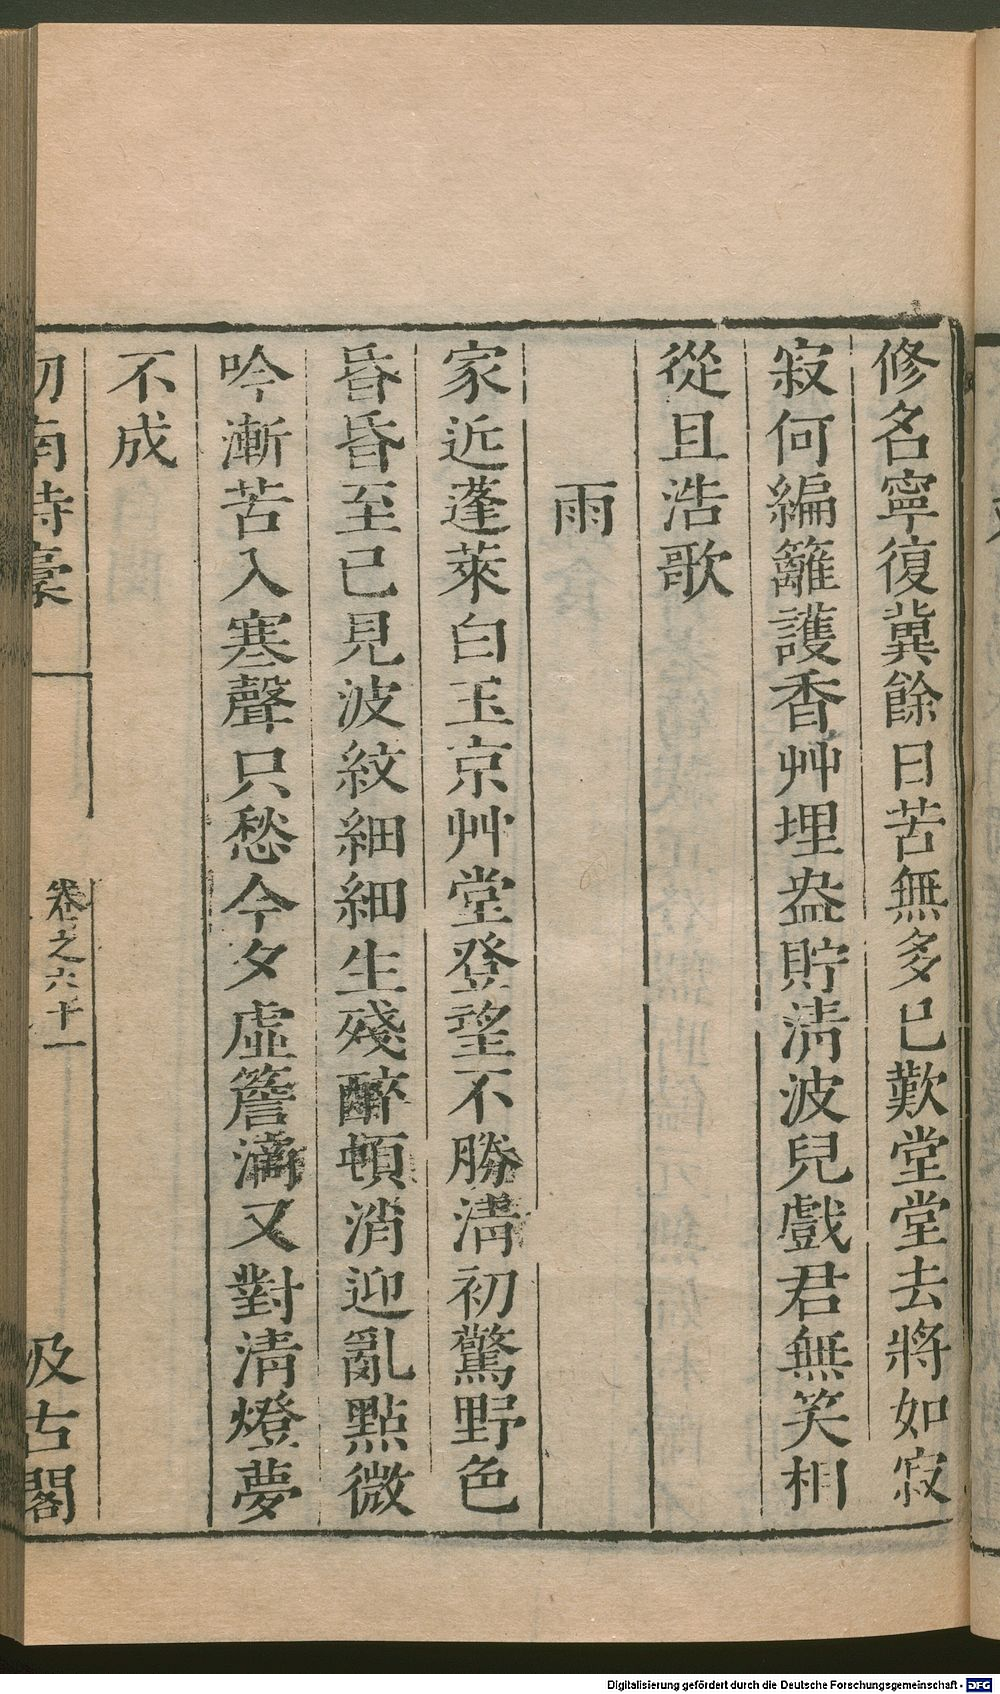 修名寧復冀餘日苦無多已歎堂堂去將如寂
寂何編籬護香艸埋盎貯淸波兒戲君無笑相
從且浩歌
雨
家近蓬萊白玉京艸堂登望不勝淸初驚野色
昏昏至已見波紋細細生殘醉頓消迎亂點微
吟漸苦入寒聲只愁今夕虛簷滴又對淸燈夢
不成
劒南詩稾
卷之六十一
汲古閣
Digitalisierung gefördert durch die Deutsche Forschungsgemeinschaft - DFG